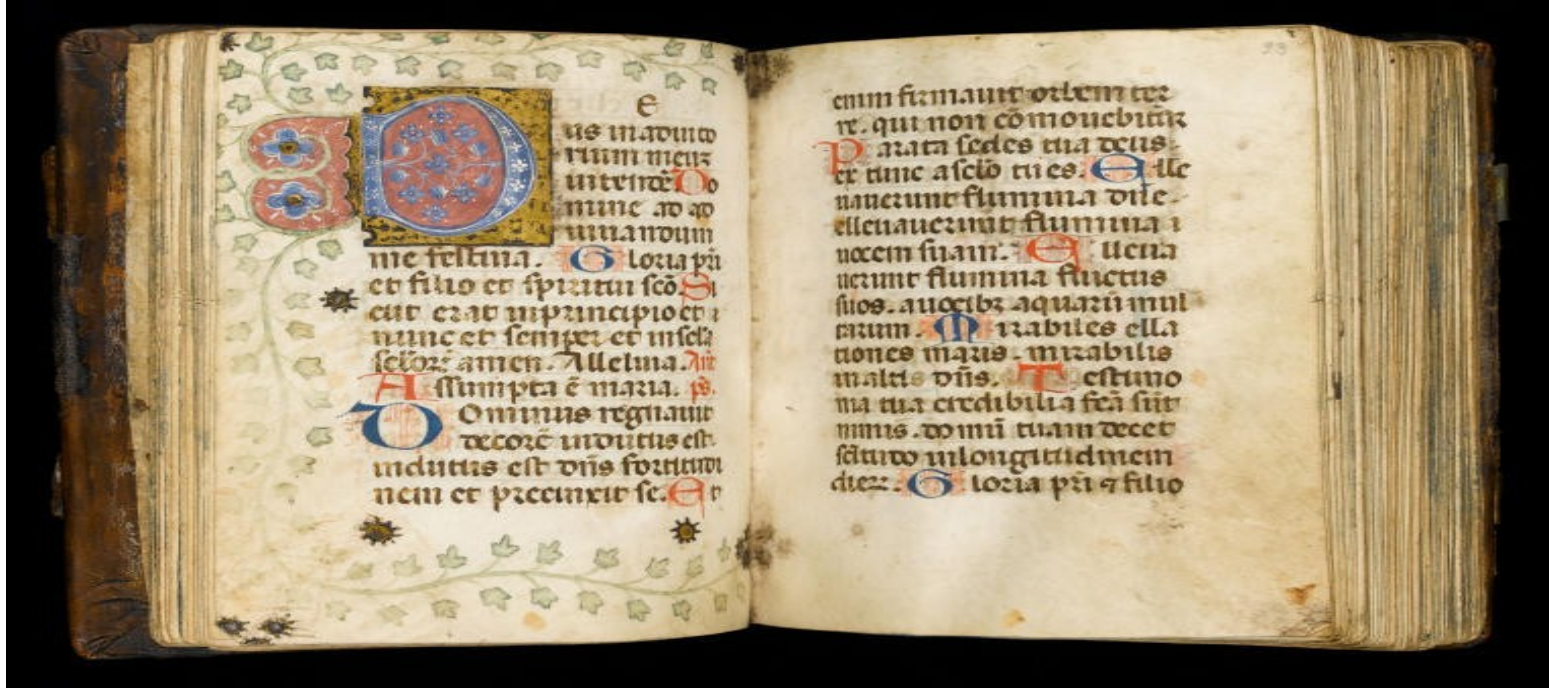 D e
us in adiuto
rium meuz
intende Do
mine ad ad
iuuandum
me festina. Gloria pri
et filio et spiritui sco Si
cut erat in principio et
nunc et semper et in secla
seclorz amen. Alleluia. An
Assumpta e maria. ps.
Dominus regnauit
decorē indutus est
indutus est dns fortitudi
nem et precinxit se. Et
93
enim firmauit orbem ter
re. qui non cōmouebitur
Parata sedes tua deus
ex tunc a sclo tu es. Elle
uauerunt flumina dne
elleuauerunt flumina
uocem suam. Elleua
uerunt flumina fluctus
suos. auocibz aquarū mul
tarum. Mirabiles ella
tiones maris. mirabilis
in altis dns. Testimo
nia tua credibilia fcā sūt
nimis. domū tuam decet
sctitudo in longitudinem
dierz. Gloria pri et filio